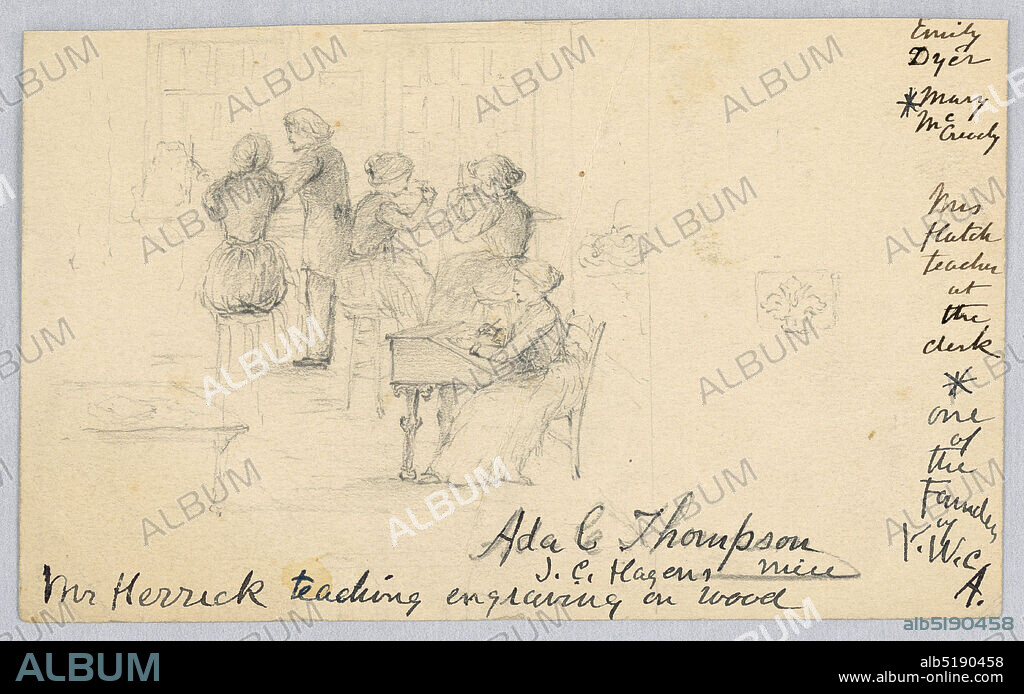 Emily
Dyer
* Mary
McCready
Mrs
Hatch
teacher
at
the
desk
*
one
of
the
Founders
of
Y.W.C.
A.
Ada C Thompson
J. C. Hagens
Mr Herrick teaching engraving on wood
ALBUM
alb5190458
ALBUM
alb5190458
www.album-online.com